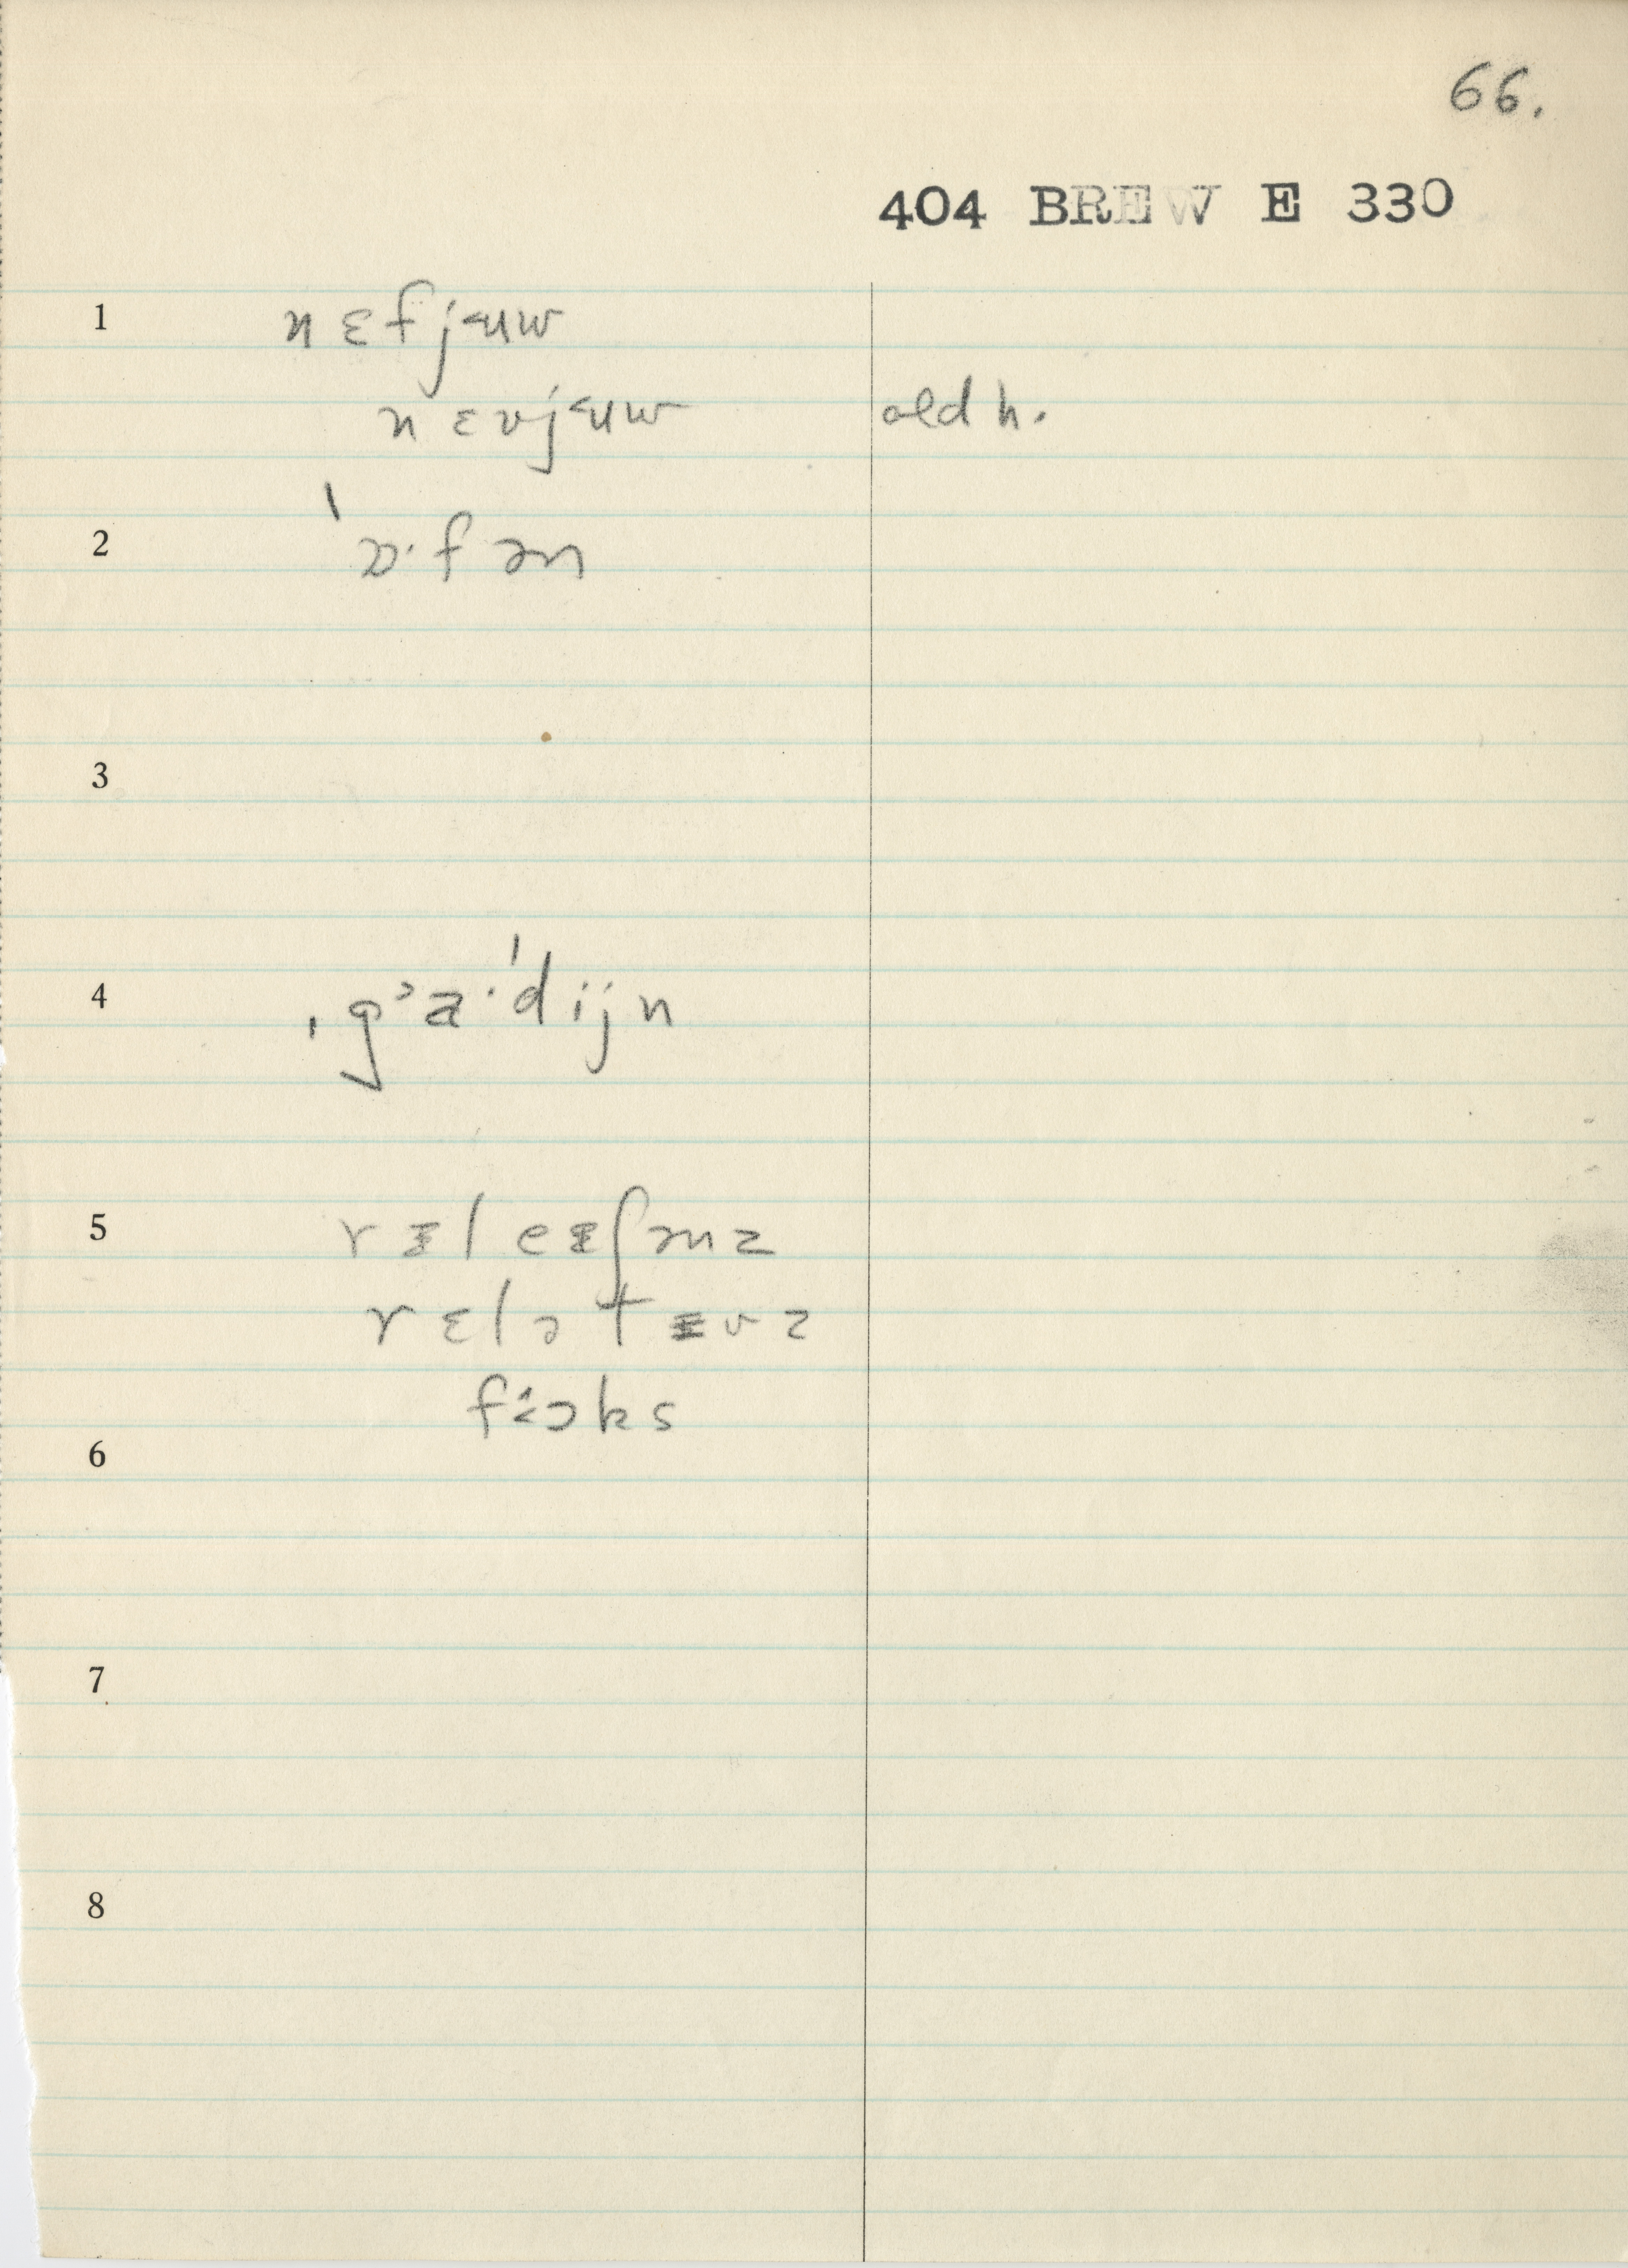 66.
404 BREW E 330
1 nɛfjʉw
nɛvjʉw old h.
2 'ɒ·fən
3
4 ˌgɜa·ˈdijn
5 rɪleɪʃənz
rɛlətɪvz
fɔks
6
7
8